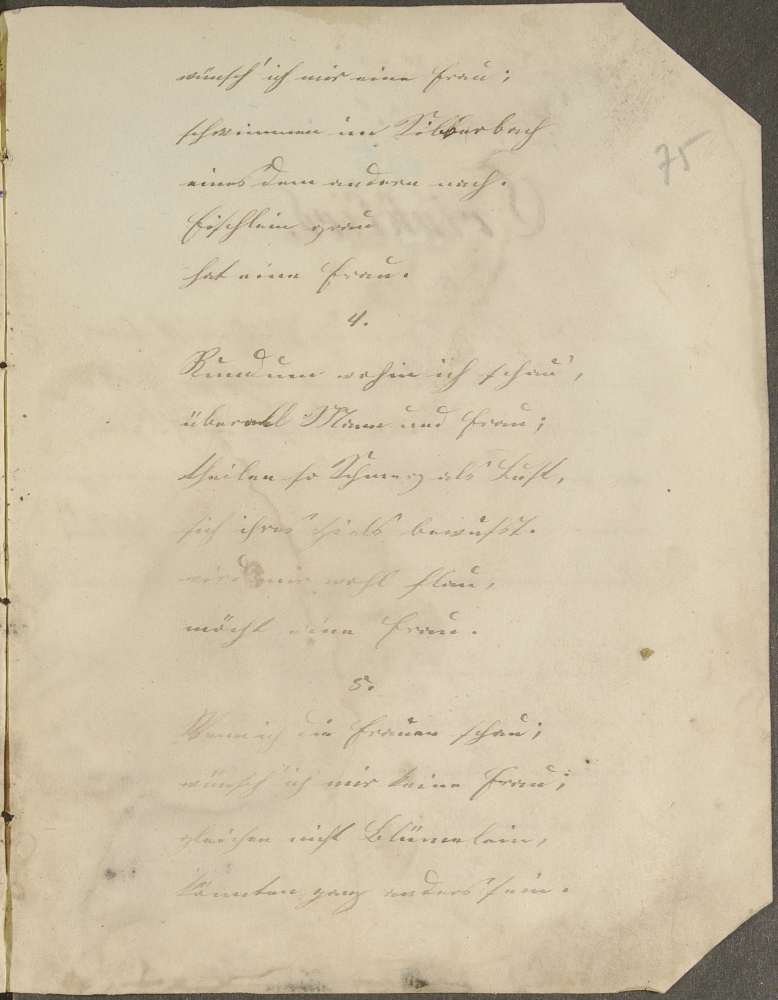 wünsch' ich mir eine Frau;
schwimmen im Silberbach
eines dem andern nach.
Fischlein grau
hat eine Frau.
4.
Rundum wohin ich schau',
überall Mann und Frau;
theilen so Schmerz als Lust,
sich ihres Ziels bewußt.
wird mir wohl flau,
möcht eine Frau.
5.
Wenn ich die Frauen schau;
wünsch' ich mir keine Frau;
gleichen nicht Blümelein,
könnten ganz anders sein.
75